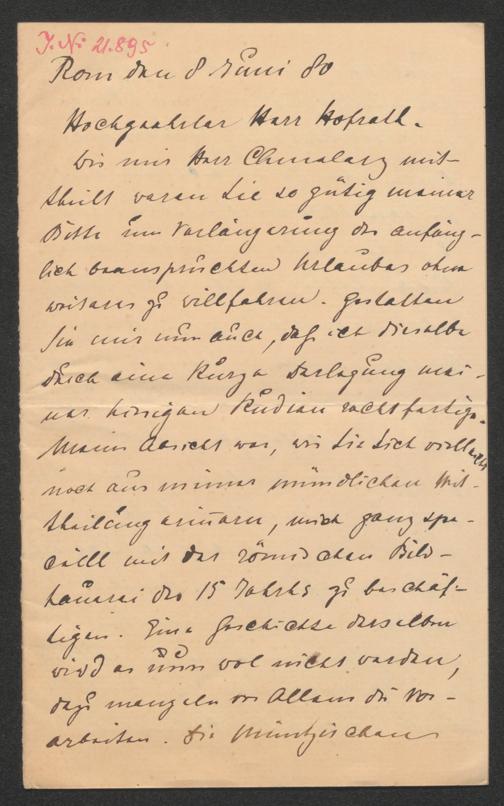 J. Nr 21.895
Rom den 8 Juni 80
Hochgeehrter Herr Hofrath.
Wie mir Herr Chmelarz mit-
theilt waren Sie so gütig meiner
Bitte um Verlängerung des anfäng-
lich beanspruchten Urlaubes ohne
weiteres zu willfahren. Gestatten
Sie mir nun auch, daß ich dieselbe
durch eine kurze Darlegung mei-
ner hiesigen Studien rechtfertige.
Meine Absicht war, wie Sie Sich vielleicht
noch aus meiner mündlichen Mit-
theilung erinnern, mich ganz spe-
ciell mit der römischen Bild-
hauerei des 15 Jahrhs zu beschäf-
tigen. Eine Geschichte derselben
wird es nun wol nicht werden,
dazu mangeln vor Allem die Vor-
arbeiten. Die Müntzischen